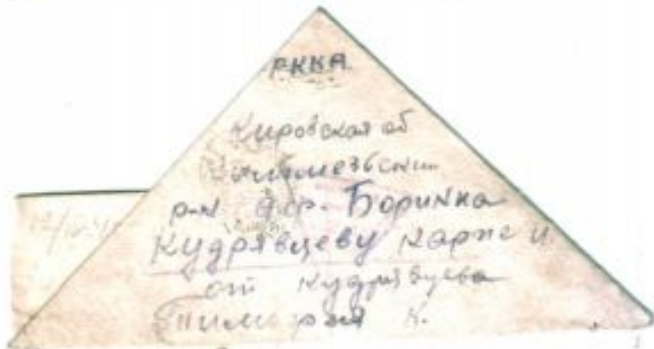 РККА.
Кировская об
Кильмезьский
р-н дер. Боринка
Кудрявцеву Карпе И.
от Кудрявцева
Тимофея К.